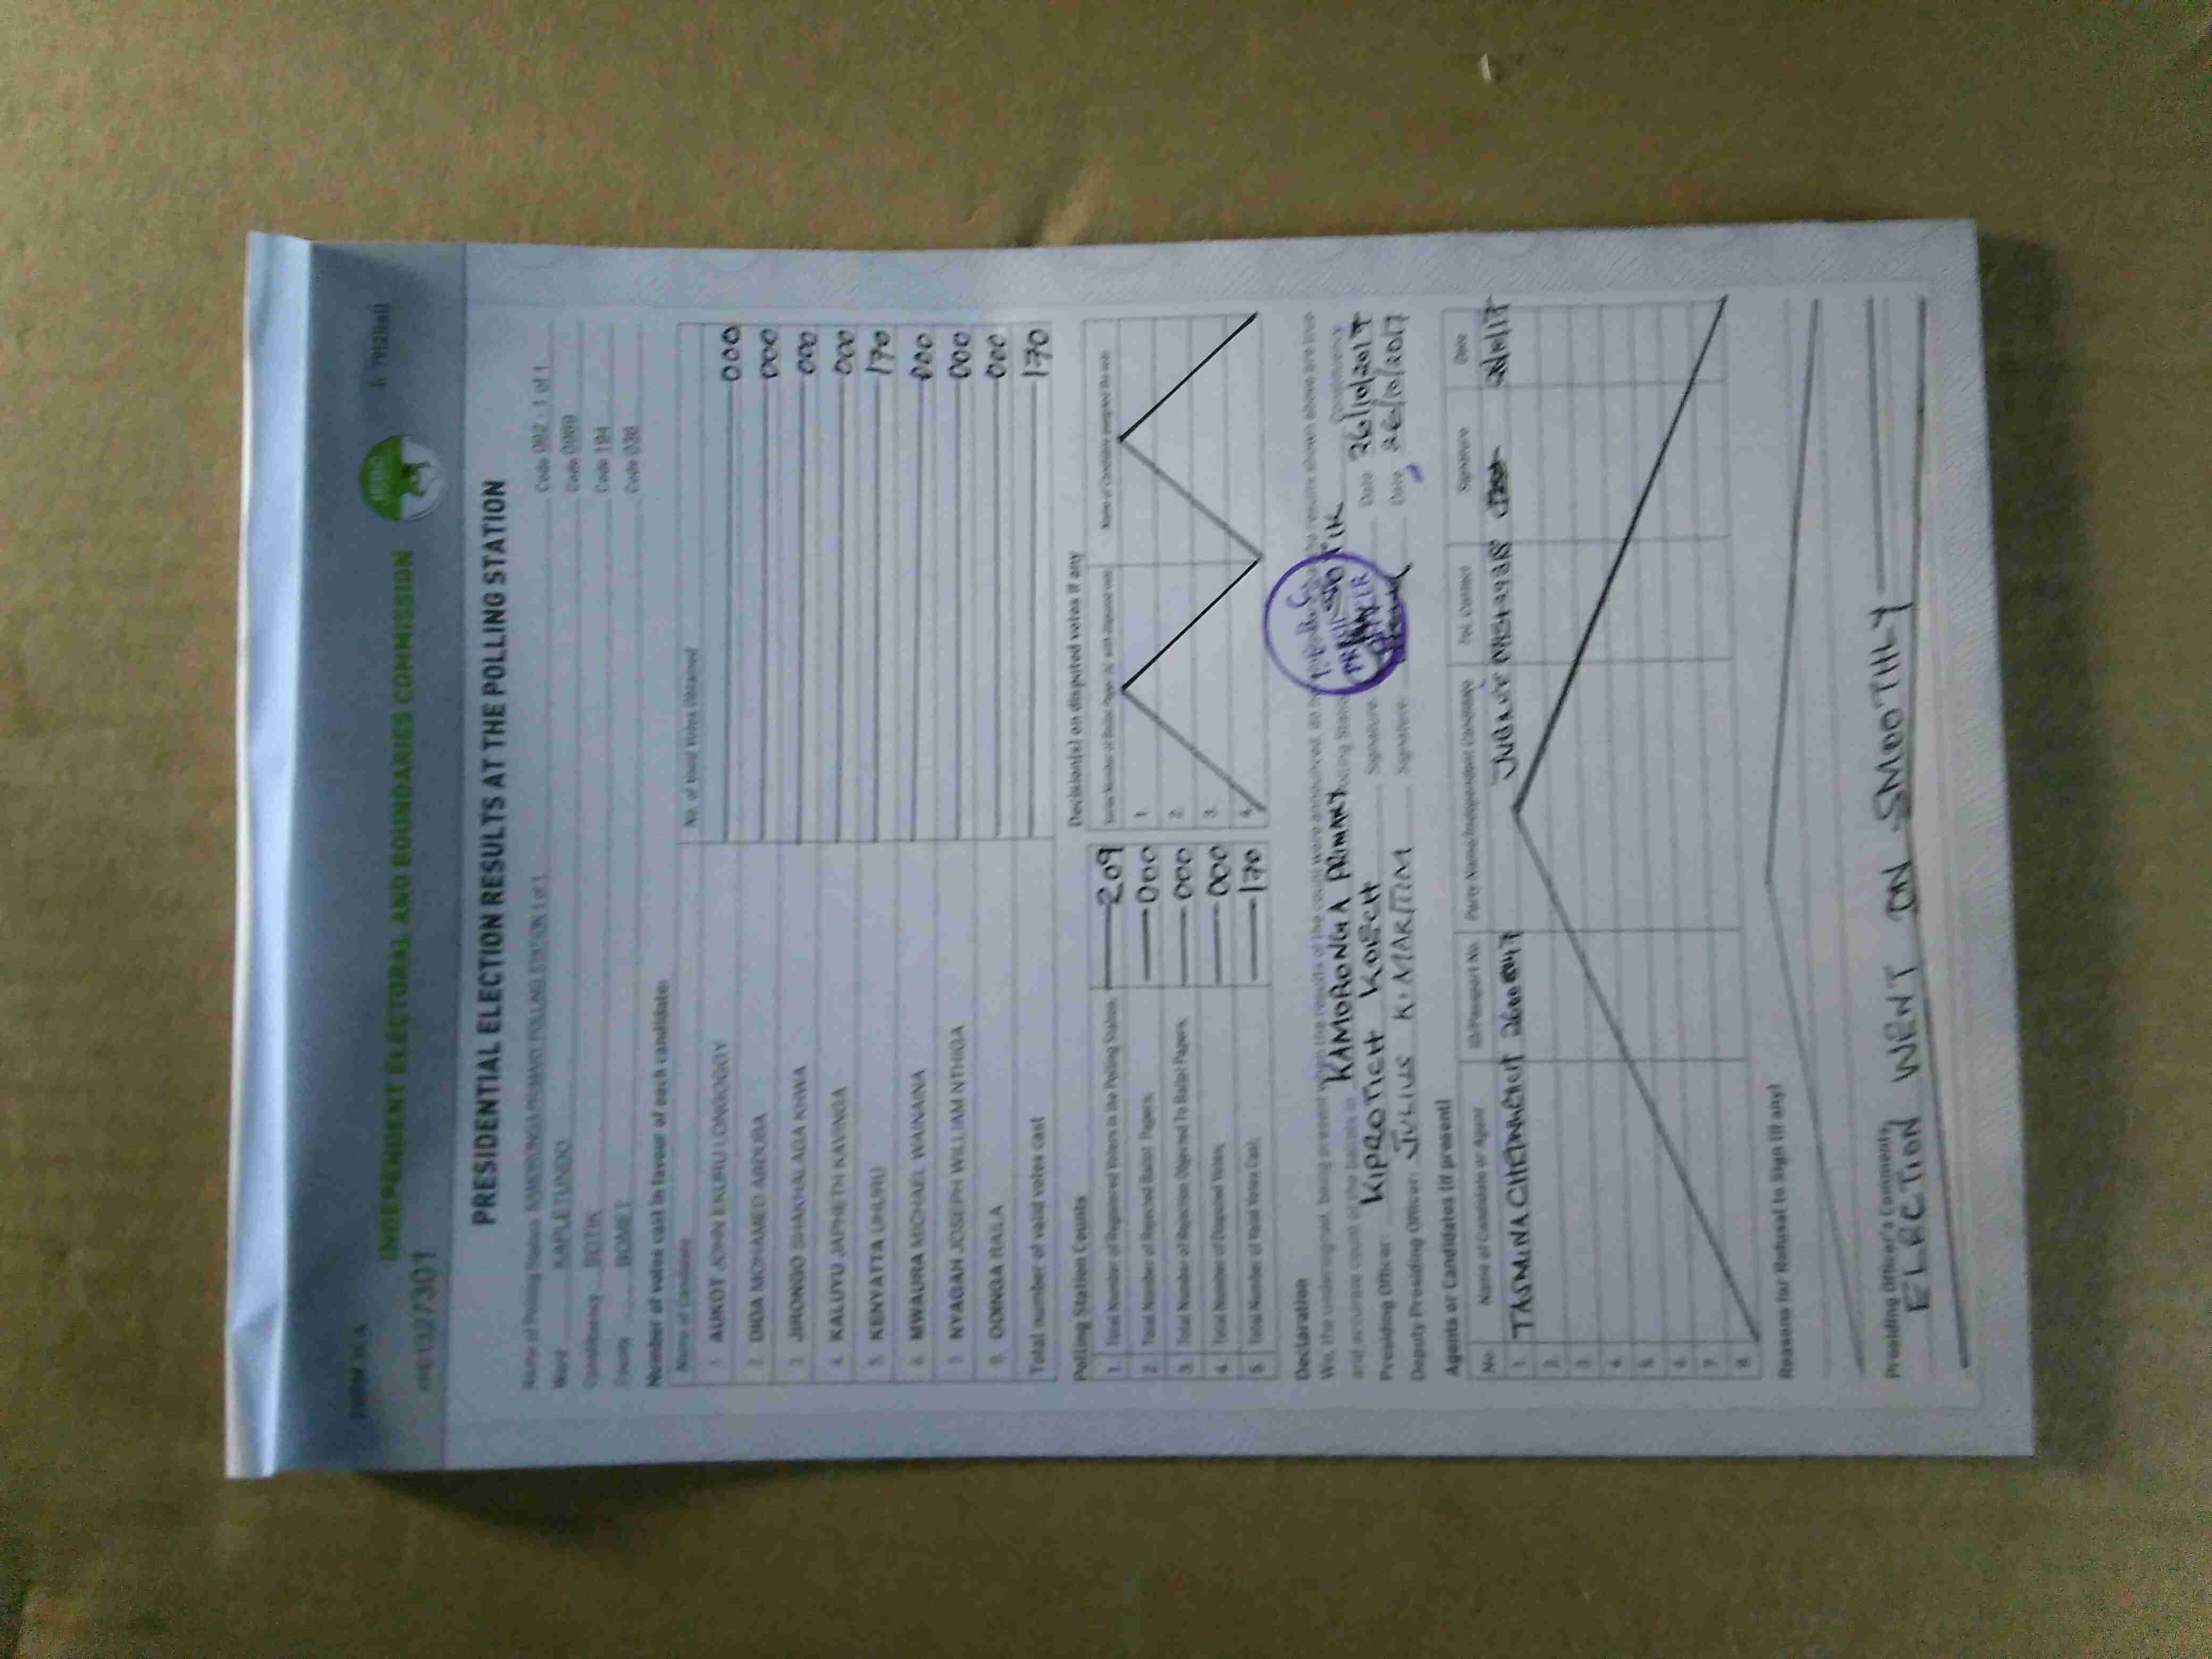 FORM 34 A
r. 79(2)(a)
INDEPENDENT ELECTORAL AND BOUNDARIES COMMISSION
IEBC
PRESIDENTIAL ELECTION RESULTS AT THE POLLING STATION
Name of Polling Station KAMORONGA PRIMARY POLLING STATION 1 of 1 Code 092 - 1 of 1
Ward KAPLETUNDO Code
Constituency SOTIK Code 194
County BOMET Code 036
Number of votes cast in favour of each candidate:
Name of Candidate No. of Valid Votes Obtained
1 AUKOT JOHN EKURU LONGOGGY 000
2 DIDA MOHAMED ABDUBA 000
3 JIRONGO SHAKHALAGA KHWA 000
4 KALUYU JAPHETH KAVINGA 000
5 KENYATTA UHURU 170
6 MWAURA MICHAEL WAINAINA 000
7 NYAGAH JOSEPH WILLIAM NTHIGA 000
8 ODINGA RAILA 000
Total number of valid votes cast 170
Polling Station Counts
1. Total Number of Registered Voters in the Polling Station 209
2. Total Number of Rejected Ballot Papers 000
3. Total Number of Rejection Objected To Ballot Papers 000
4. Total Number of Disputed Votes 000
5. Total Number of Valid Votes Cast 170
Decision(s) on disputed votes if any
1.
2.
3.
4.
Declaration
We, the undersigned, being present when the results of the count were announced, do the results shown above are true
and accurate count of the ballots in KAMORONGA PRIMARY Polling Station SOTIK Constituency
Presiding Officer: KIPROTICH KOECH Signature Date 26/10/2017
Deputy Presiding Officer: JULIUS K. MARITIM Signature Date 26/10/2017
PRESIDING OFFICER
Agents or Candidates (if present)
No. Name of Candidate or Agent ID/Passport No. Party Name/Independent Candidate Tel. Contact Signature Date
1. JUBILEE
2.
3.
4.
5.
6.
7.
8.
Reasons for Refusal to Sign (if any)
Presiding Officer's Comments
ELECTION WENT ON SMOOTHLY